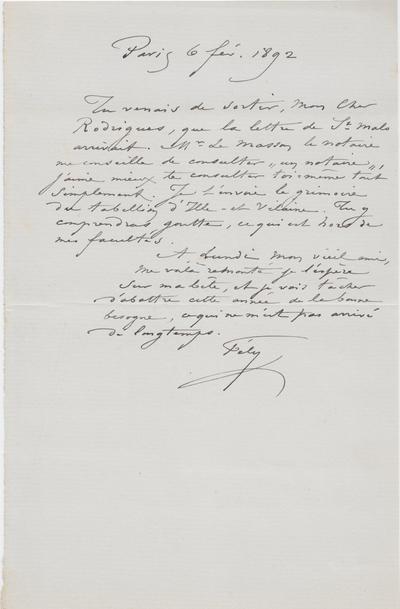 Paris 6 fév. 1892
Tu venais de sortir, mon cher
Rodrigues, que la lettre de St Malo
arrivait. Mr Le Masson, le notaire
me conseille de consulter "un notaire",
j'aime mieux te consulter toi-même tout
simplement. Je t'envoie le grimoire
du tabellion d'Ille-et-Vilaine. Tu y
comprendras goutte, ce qui est hors de
mes facultés.
A lundi mon vieil ami,
me voilà remonté je l'espère
sur ma bête, et je vais tâcher
d'abattre cette année de la bonne
besogne, ce qui ne m'est pas arrivé
de longtemps.
Fély